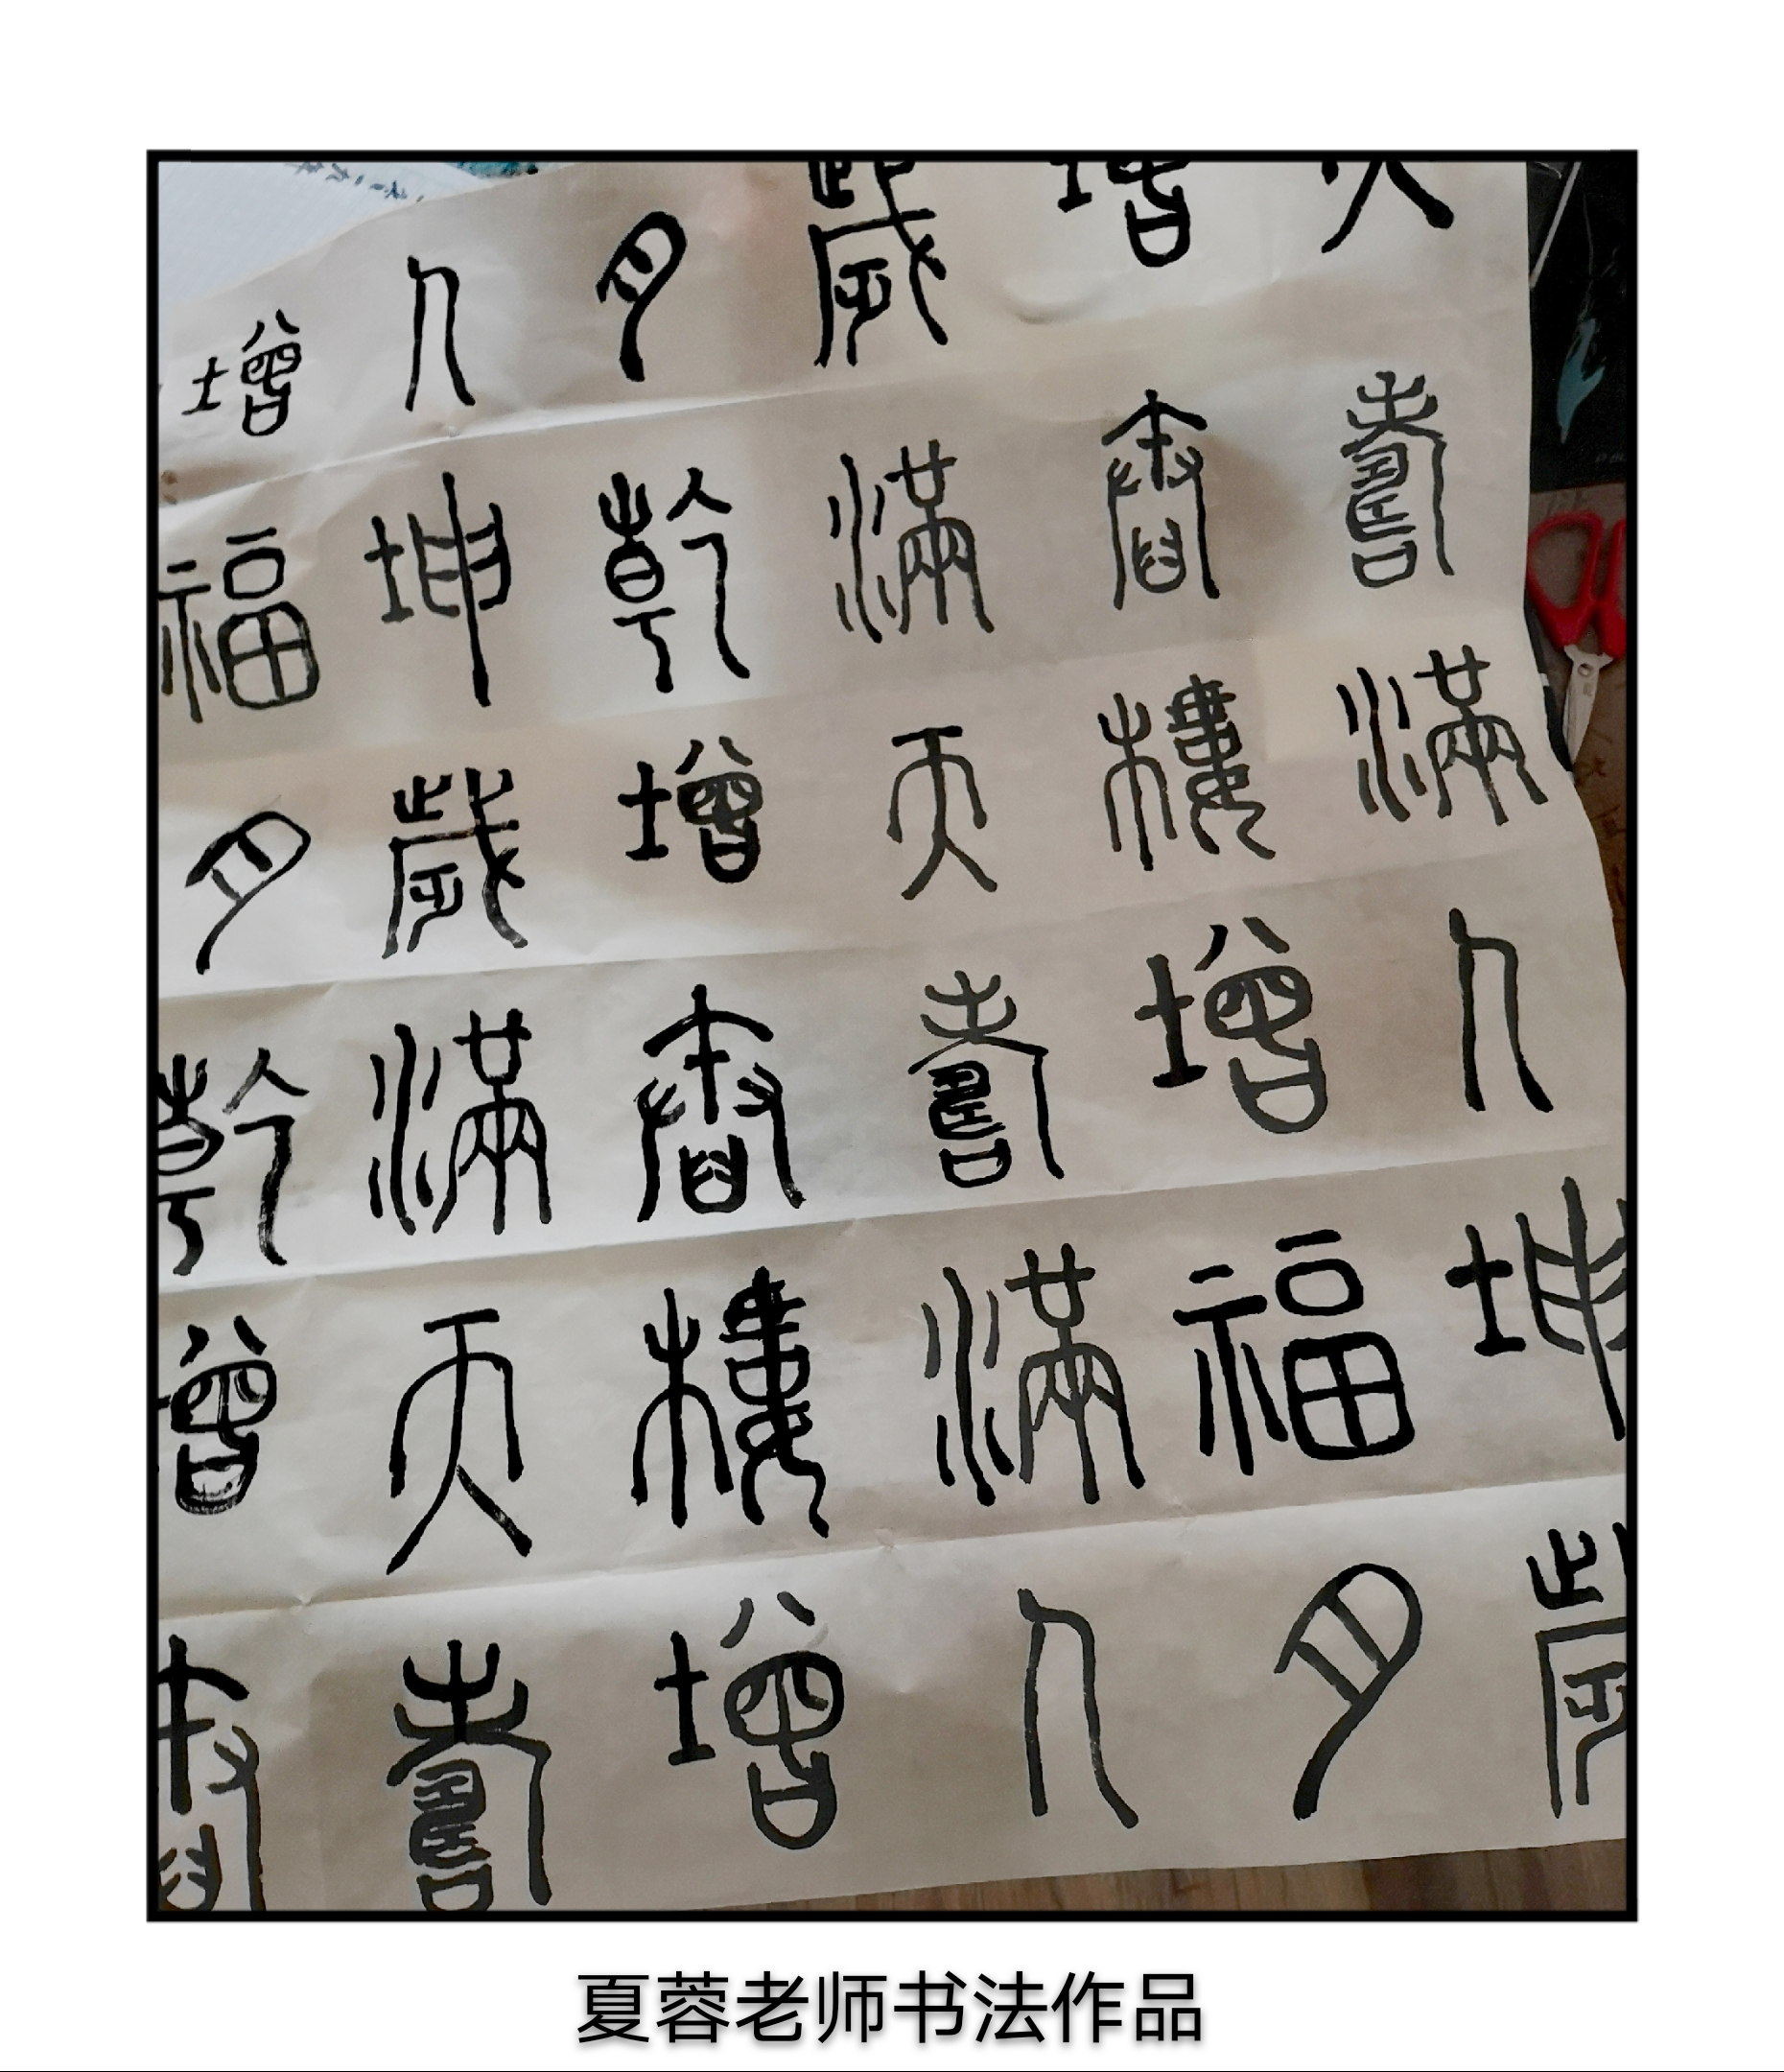 天增歲月人增
壽春滿乾坤福
滿樓天增歲月
人增壽春滿乾
坤福滿樓天增
歲月人增壽春
夏蓉老师书法作品